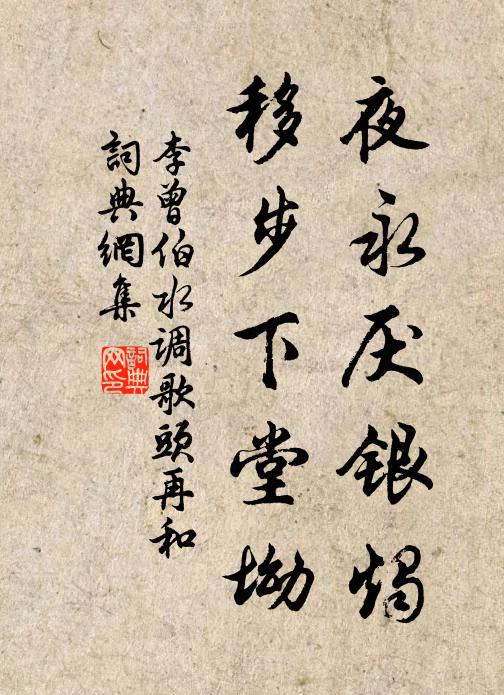 夜永厌銀燭
移步下堂坳
李曾伯水调歌頭再和
詞典網集
詞典网印